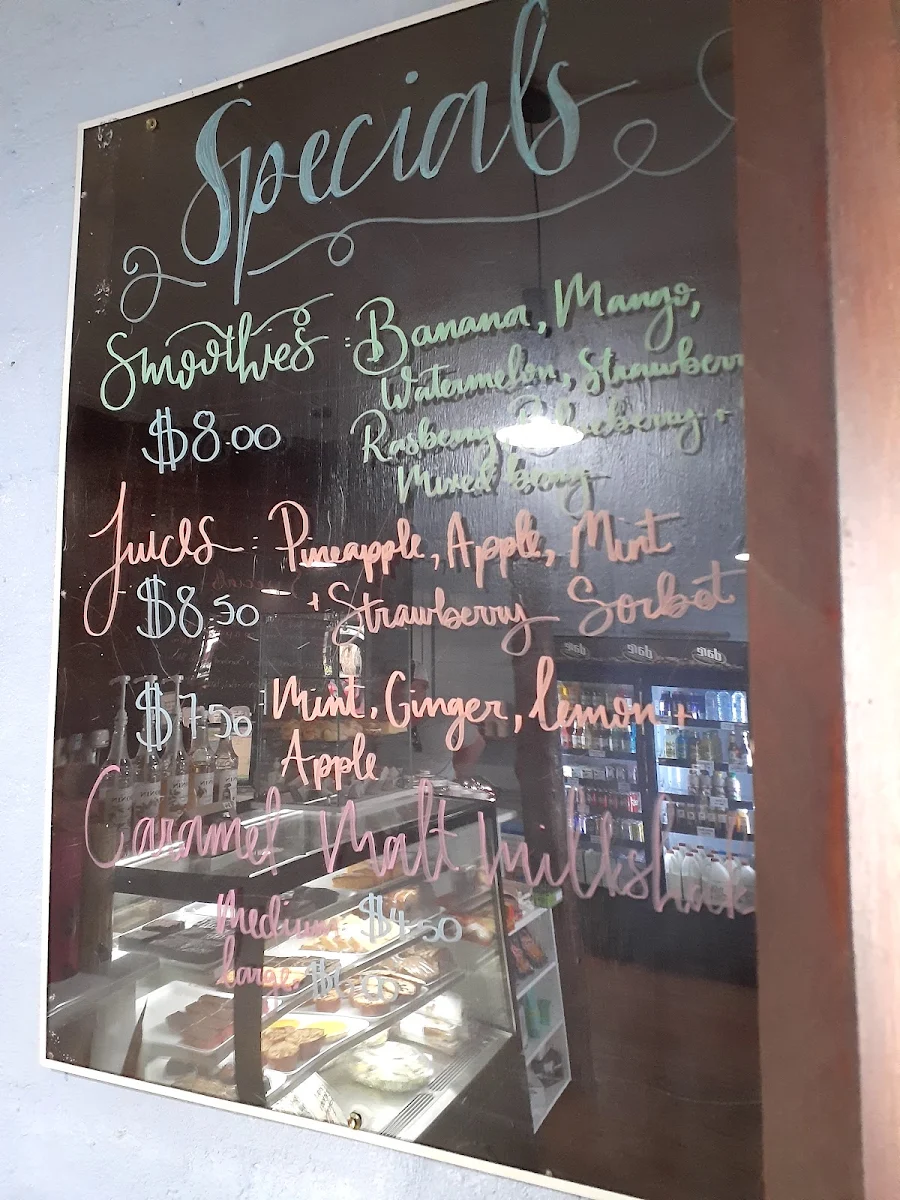 Specials
Smoothies : Banana, Mango,
Watermelon, Strawberr
$8.00
Rasberry, Blueberry +
Mixed berry
Juices : Pineapple, Apple, Mint
$8.50 + Strawberry Sorbet
$7.50 Mint, Ginger, lemon +
Apple
Caramel Malt Milkshak
Medium $4.50
large
dare dare dare